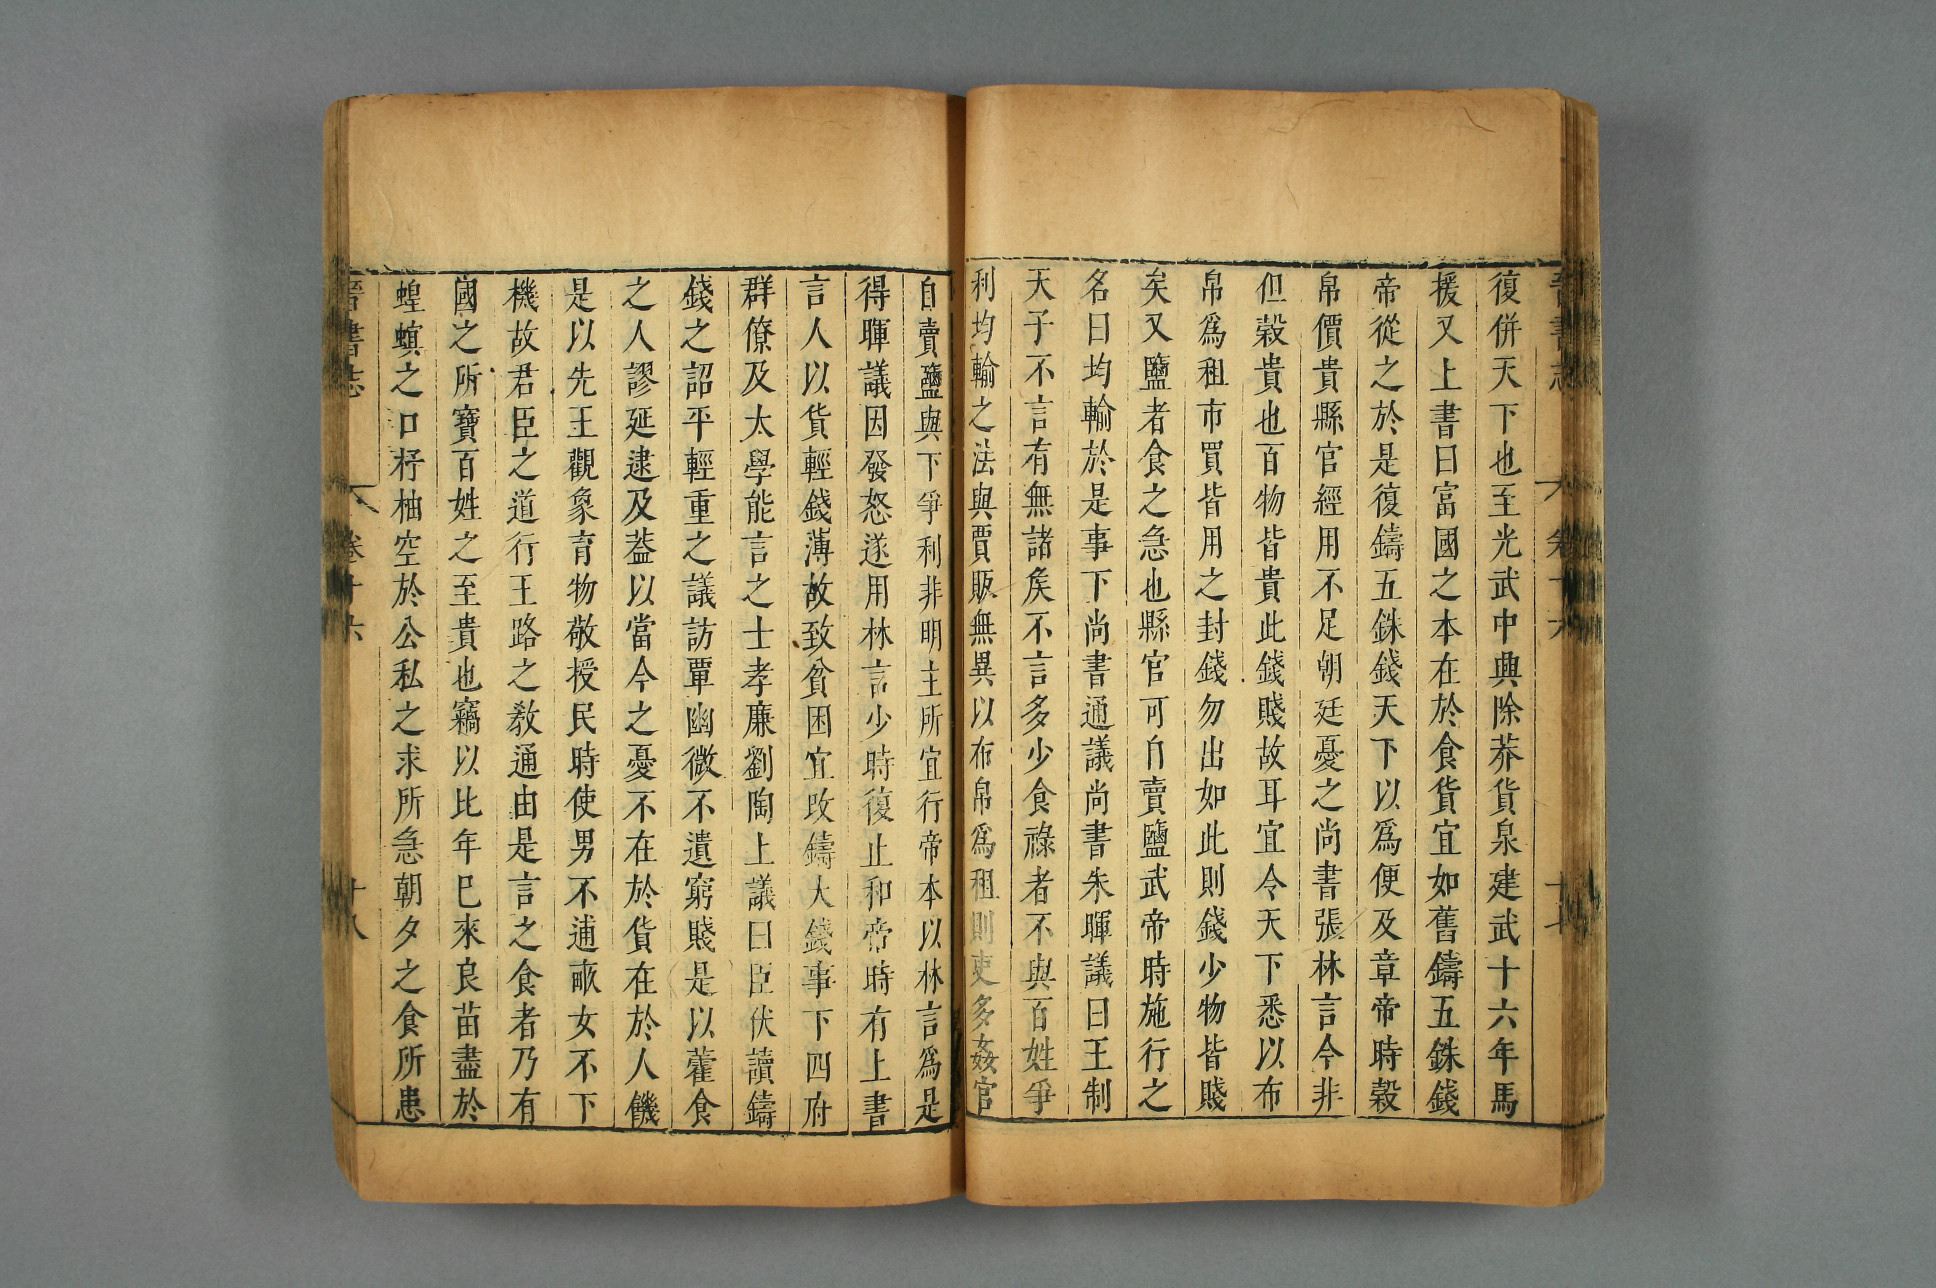 復併天下也至光武中興除莽貨泉建武十六年馬
援又上書曰富國之本在於食貨宜如舊鑄五銖錢
帝從之於是復鑄五銖錢天下以爲便及章帝時穀
帛價貴縣官經用不足朝廷憂之尚書張林言今非
但穀貴也百物皆貴此錢賤故耳宜令天下悉以布
帛爲租市買皆用之封錢勿出如此則錢少物皆賤
矣又鹽者食之急也縣官可自賣鹽武帝時施行之
名曰均輸於是事下尚書通議尚書朱暉議曰王制
天子不言有無諸矦不言多少食祿者不與百姓爭
利均輸之法與賈販無異以布帛爲租則吏多姦官
自賣鹽與下爭利非明主所宜行帝本以林言爲是
得暉議因發怒遂用林言少時復止和帝時有上書
言人以貨輕錢薄故致貧困宜改鑄大錢事下四府
群僚及太學能言之士孝廉劉陶上議曰臣伏讀鑄
錢之詔平輕重之議訪覃幽微不遺窮賤是以藿食
之人謬延逮及葢以當今之憂不在於貨在於人饑
是以先王觀象育物敬授民時使男不逋畝女不下
機故君臣之道行王路之敎通由是言之食者乃有
國之所寶百姓之至貴也竊以比年巳來良苗盡於
蝗螟之口杼柚空於公私之求所急朝夕之食所患
晉書志 卷十六 十八